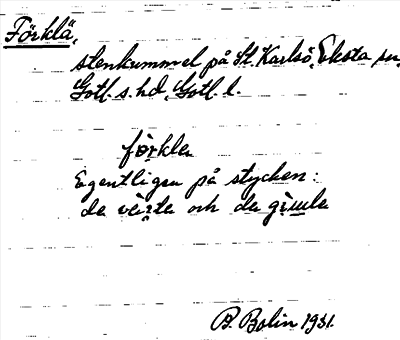 Förklä,
stenkummel på St. Karlsö, Eksta sn,
Gotl. s. hd, Gotl. l.
förkle
Egentligen på stycken:
de väi̯te och de gimle
B. Bolin 1931.